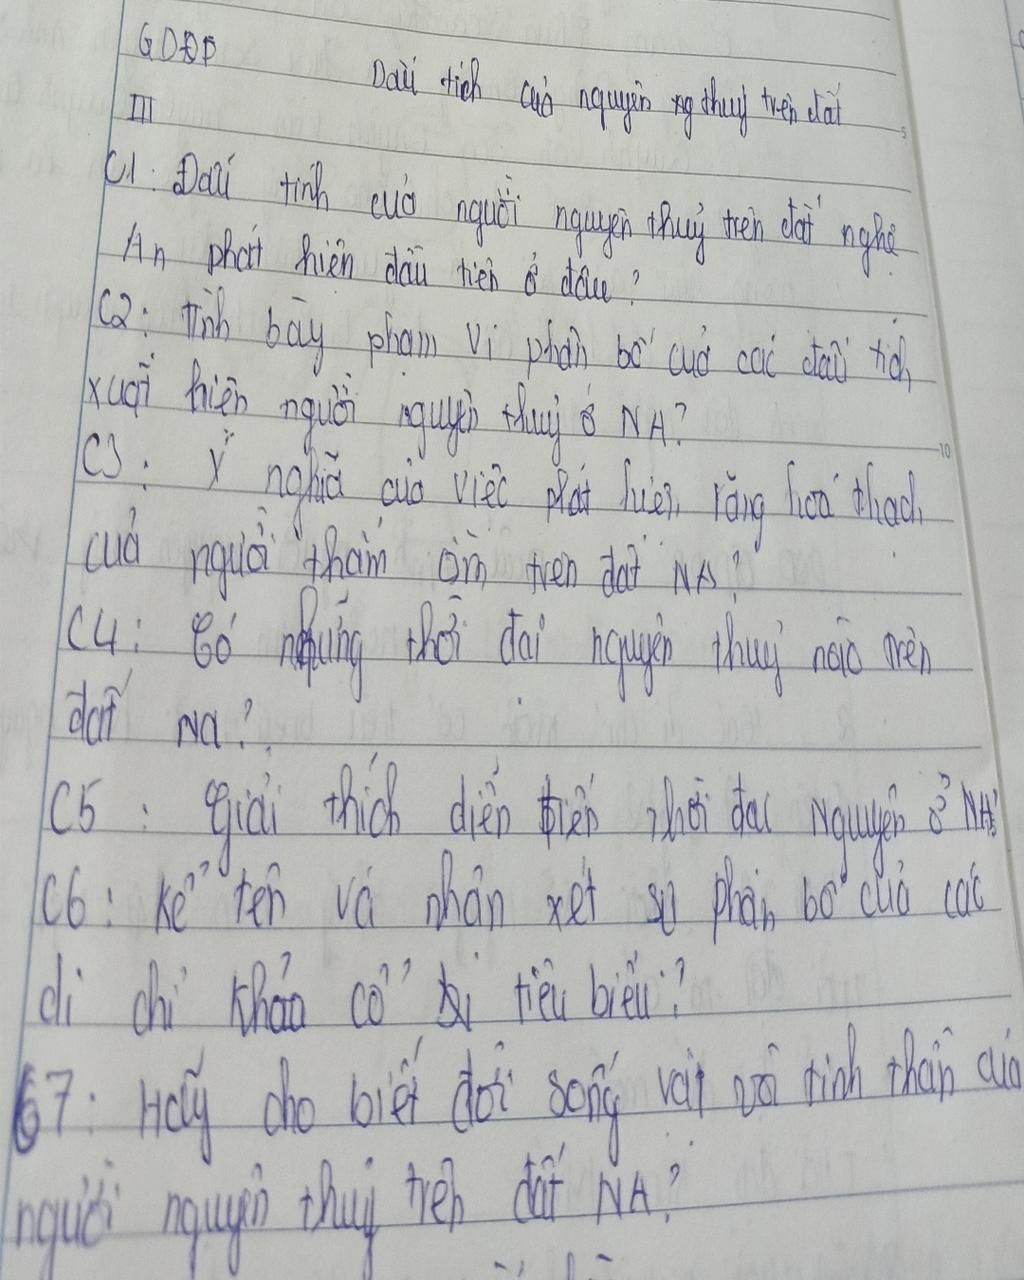 GDĐP
Dấu tích của nguyên ng thuỷ trên đất
III
C1: Dấu tính của người nguyên thuỷ trên đất nghệ
An phát hiện đầu tiên ở đâu?
C2: Tình bày phạm vi phân bố của các dấu tích
xuất hiện người nguyên thuỷ ở NA?
C3: Ý nghĩa của việc phát hiện răng hoá thạch
của người thẩm ồm trên đất NA?
C4: Có những thời đại nguyên thuỷ nào trên
đất NA?
C5: Giải thích diễn biến thời đại Nguyên ở NA?
C6: Kể tên và nhận xét sự phân bố của các
di chỉ khảo cổ tiêu biểu?
C7: Hãy cho biết đời sống vật và tinh thần của
người nguyên thuỷ trên đất NA?